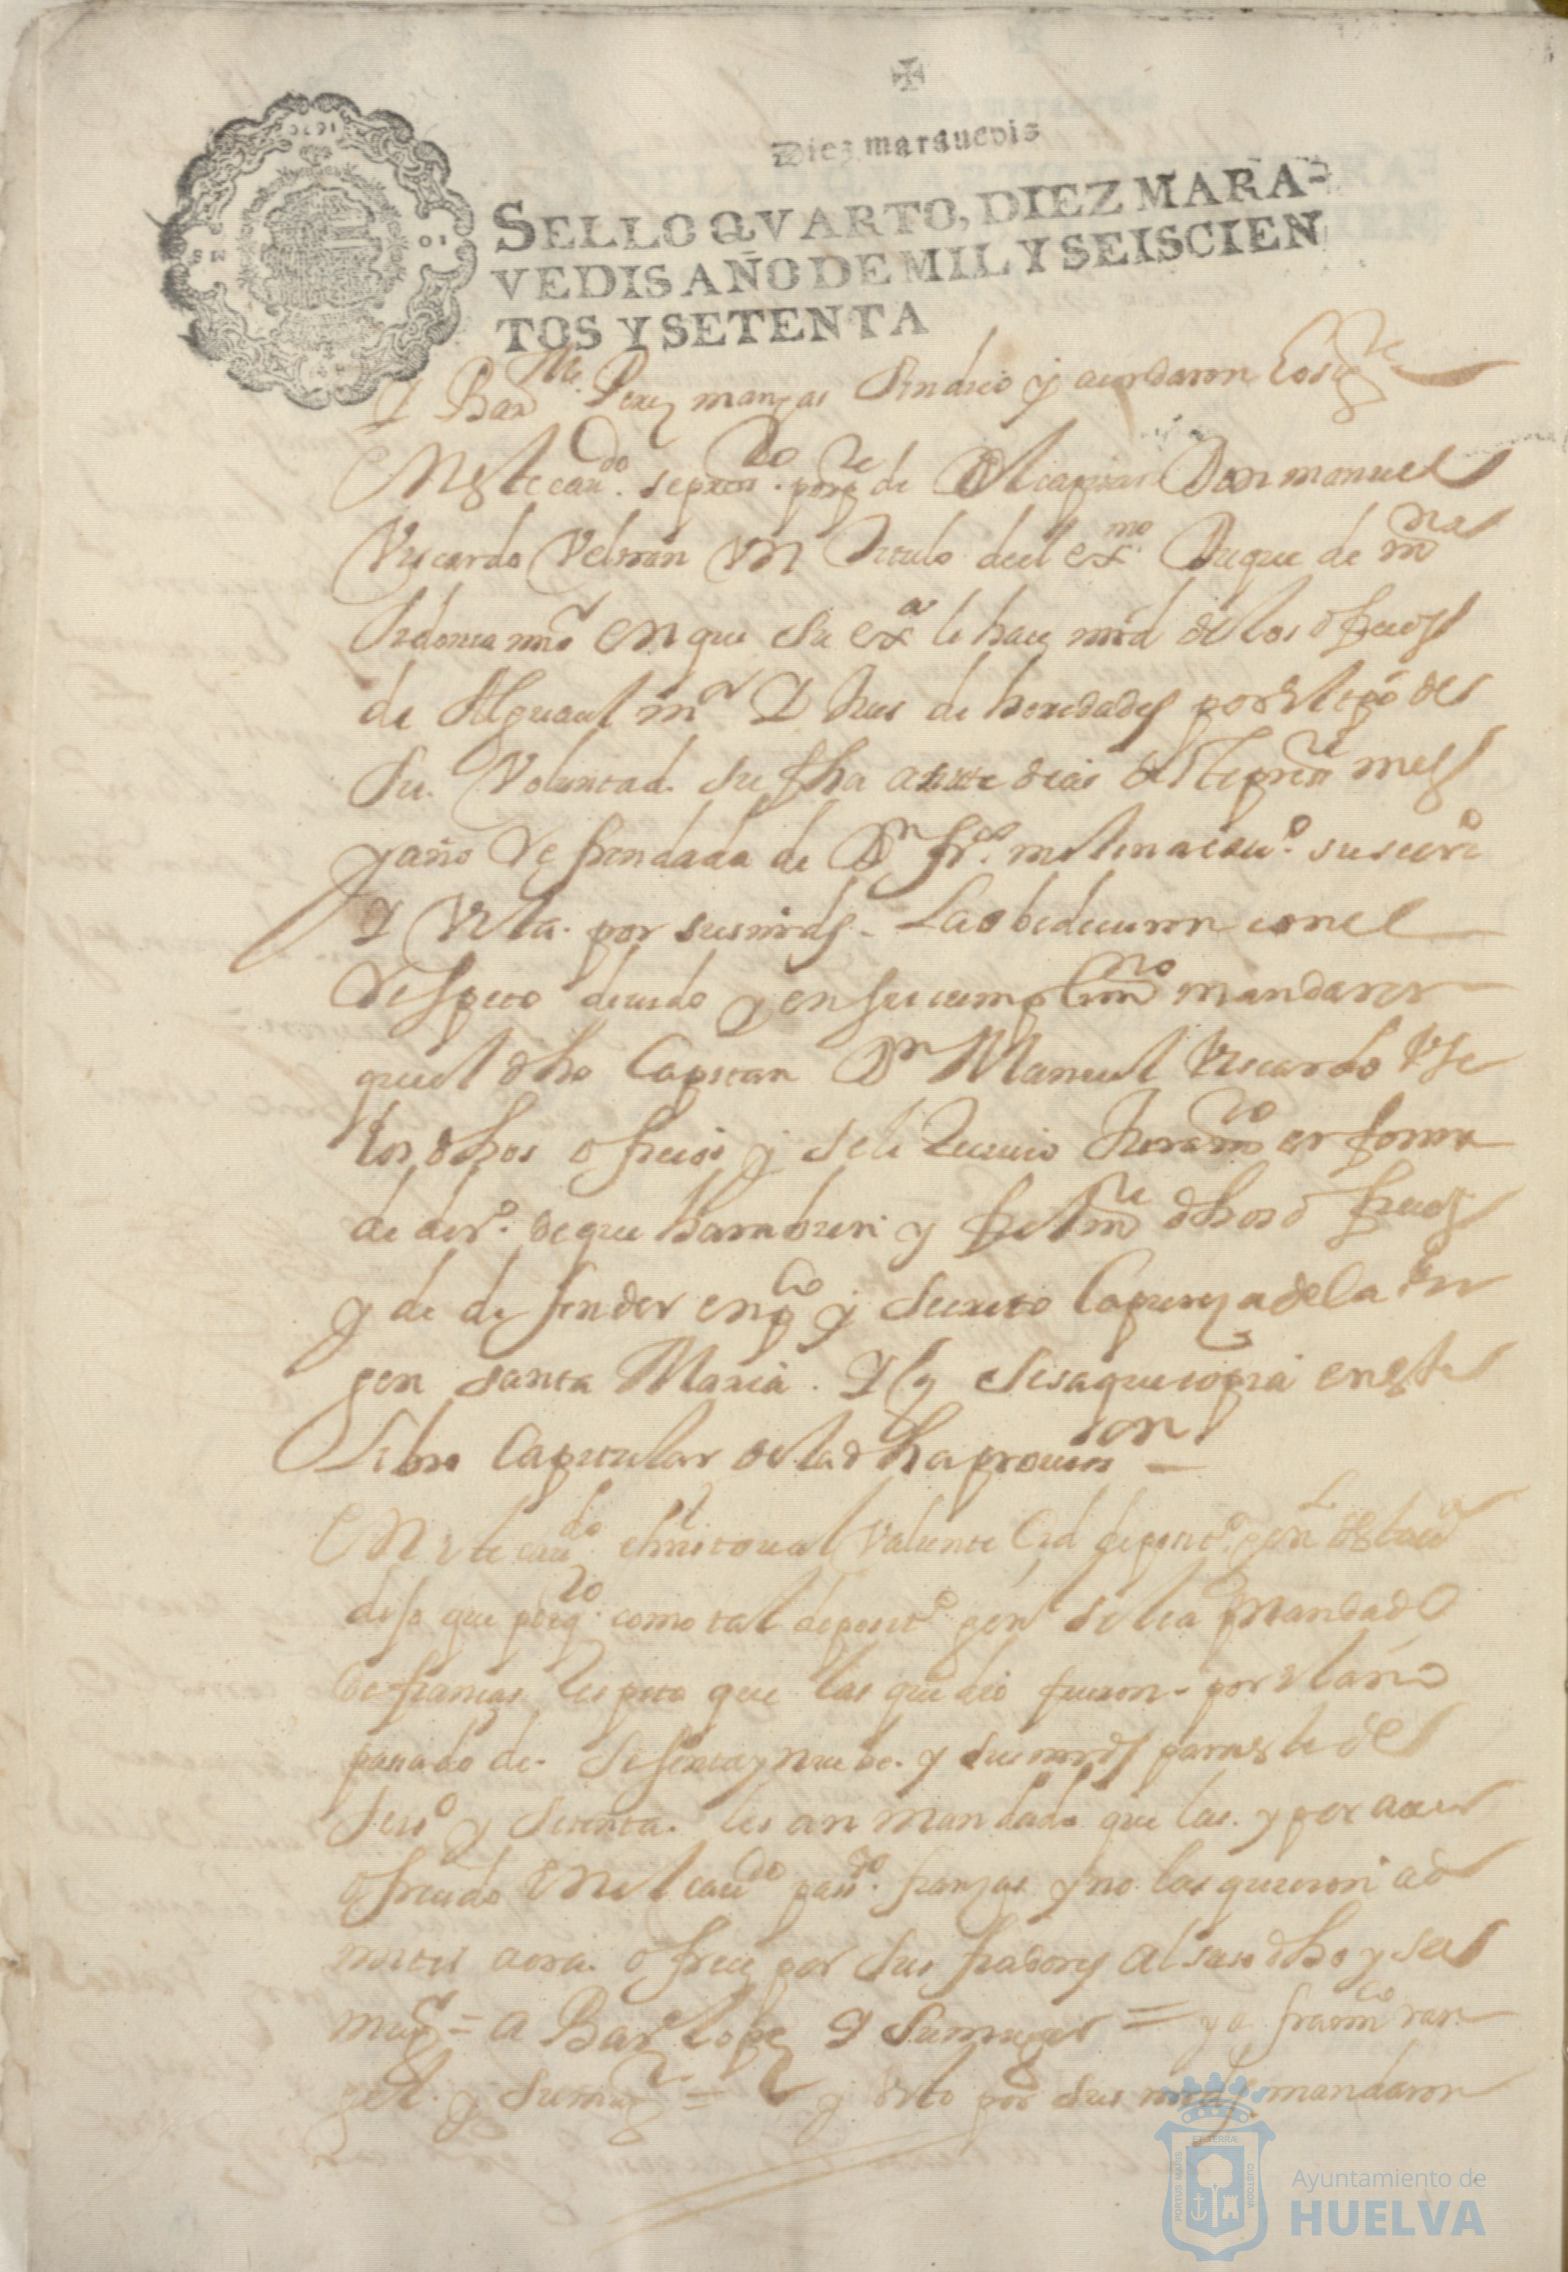 Diez marauedis
SELLO QVARTO, DIEZ MARA-
VEDIS AÑO DE MIL Y SEISCIEN
TOS Y SETENTA
1670
Y Barme Perez manzas sindico y acordaron lo sigte
En este caudo se presto por pte de el capitan Don manuel
Viscardo Veltran Vn titulo de el exmo Duque de mna
sidonia mi sr en que su exa le hace mrd de los oficios
de Alguacil mor Y Jues de heredades por el tpo de
su Voluntad su fha a siete dias deste prete mes
y año Refrendada de Dn frco molina caso suscrio
Y Vista por sus mrds - La obedecieron con el
Respeto deuido y en su cumplimto mandaron
que el dho Capitan Dn Manuel Viscardo Vse
los dhos oficios y se le Reciuio Juramto en forma
de dero de que Vsara bien y fielmte dhos oficios
y de defender en pco y secreto la pureza de la Vir
gen santa Maria . Y se saque copia en este
Libro Capitular de la dha prouision -
En este caudo christoual Valiente Cid deposito genl desta va
dijo que por qto como tal deposito genl se le a mandado
de fianzas respeto que las que dio fueron por el año
pasado de sesenta y nuebe y sus mrds para este de
seiso y setenta les an mandado que las y por auer
ofrecido En el caudo pasdo fianzas y no las quisieron ad
mitir aora ofrece por sus fiadores al suso dho y su
muger = a Bare lopez Y su muger = y a franco ran
gel y su muger = y visto por sus mrds mandaron
Ayuntamiento de
HUELVA
PORTUS MARIS
ET TERRÆ
CUSTODIA